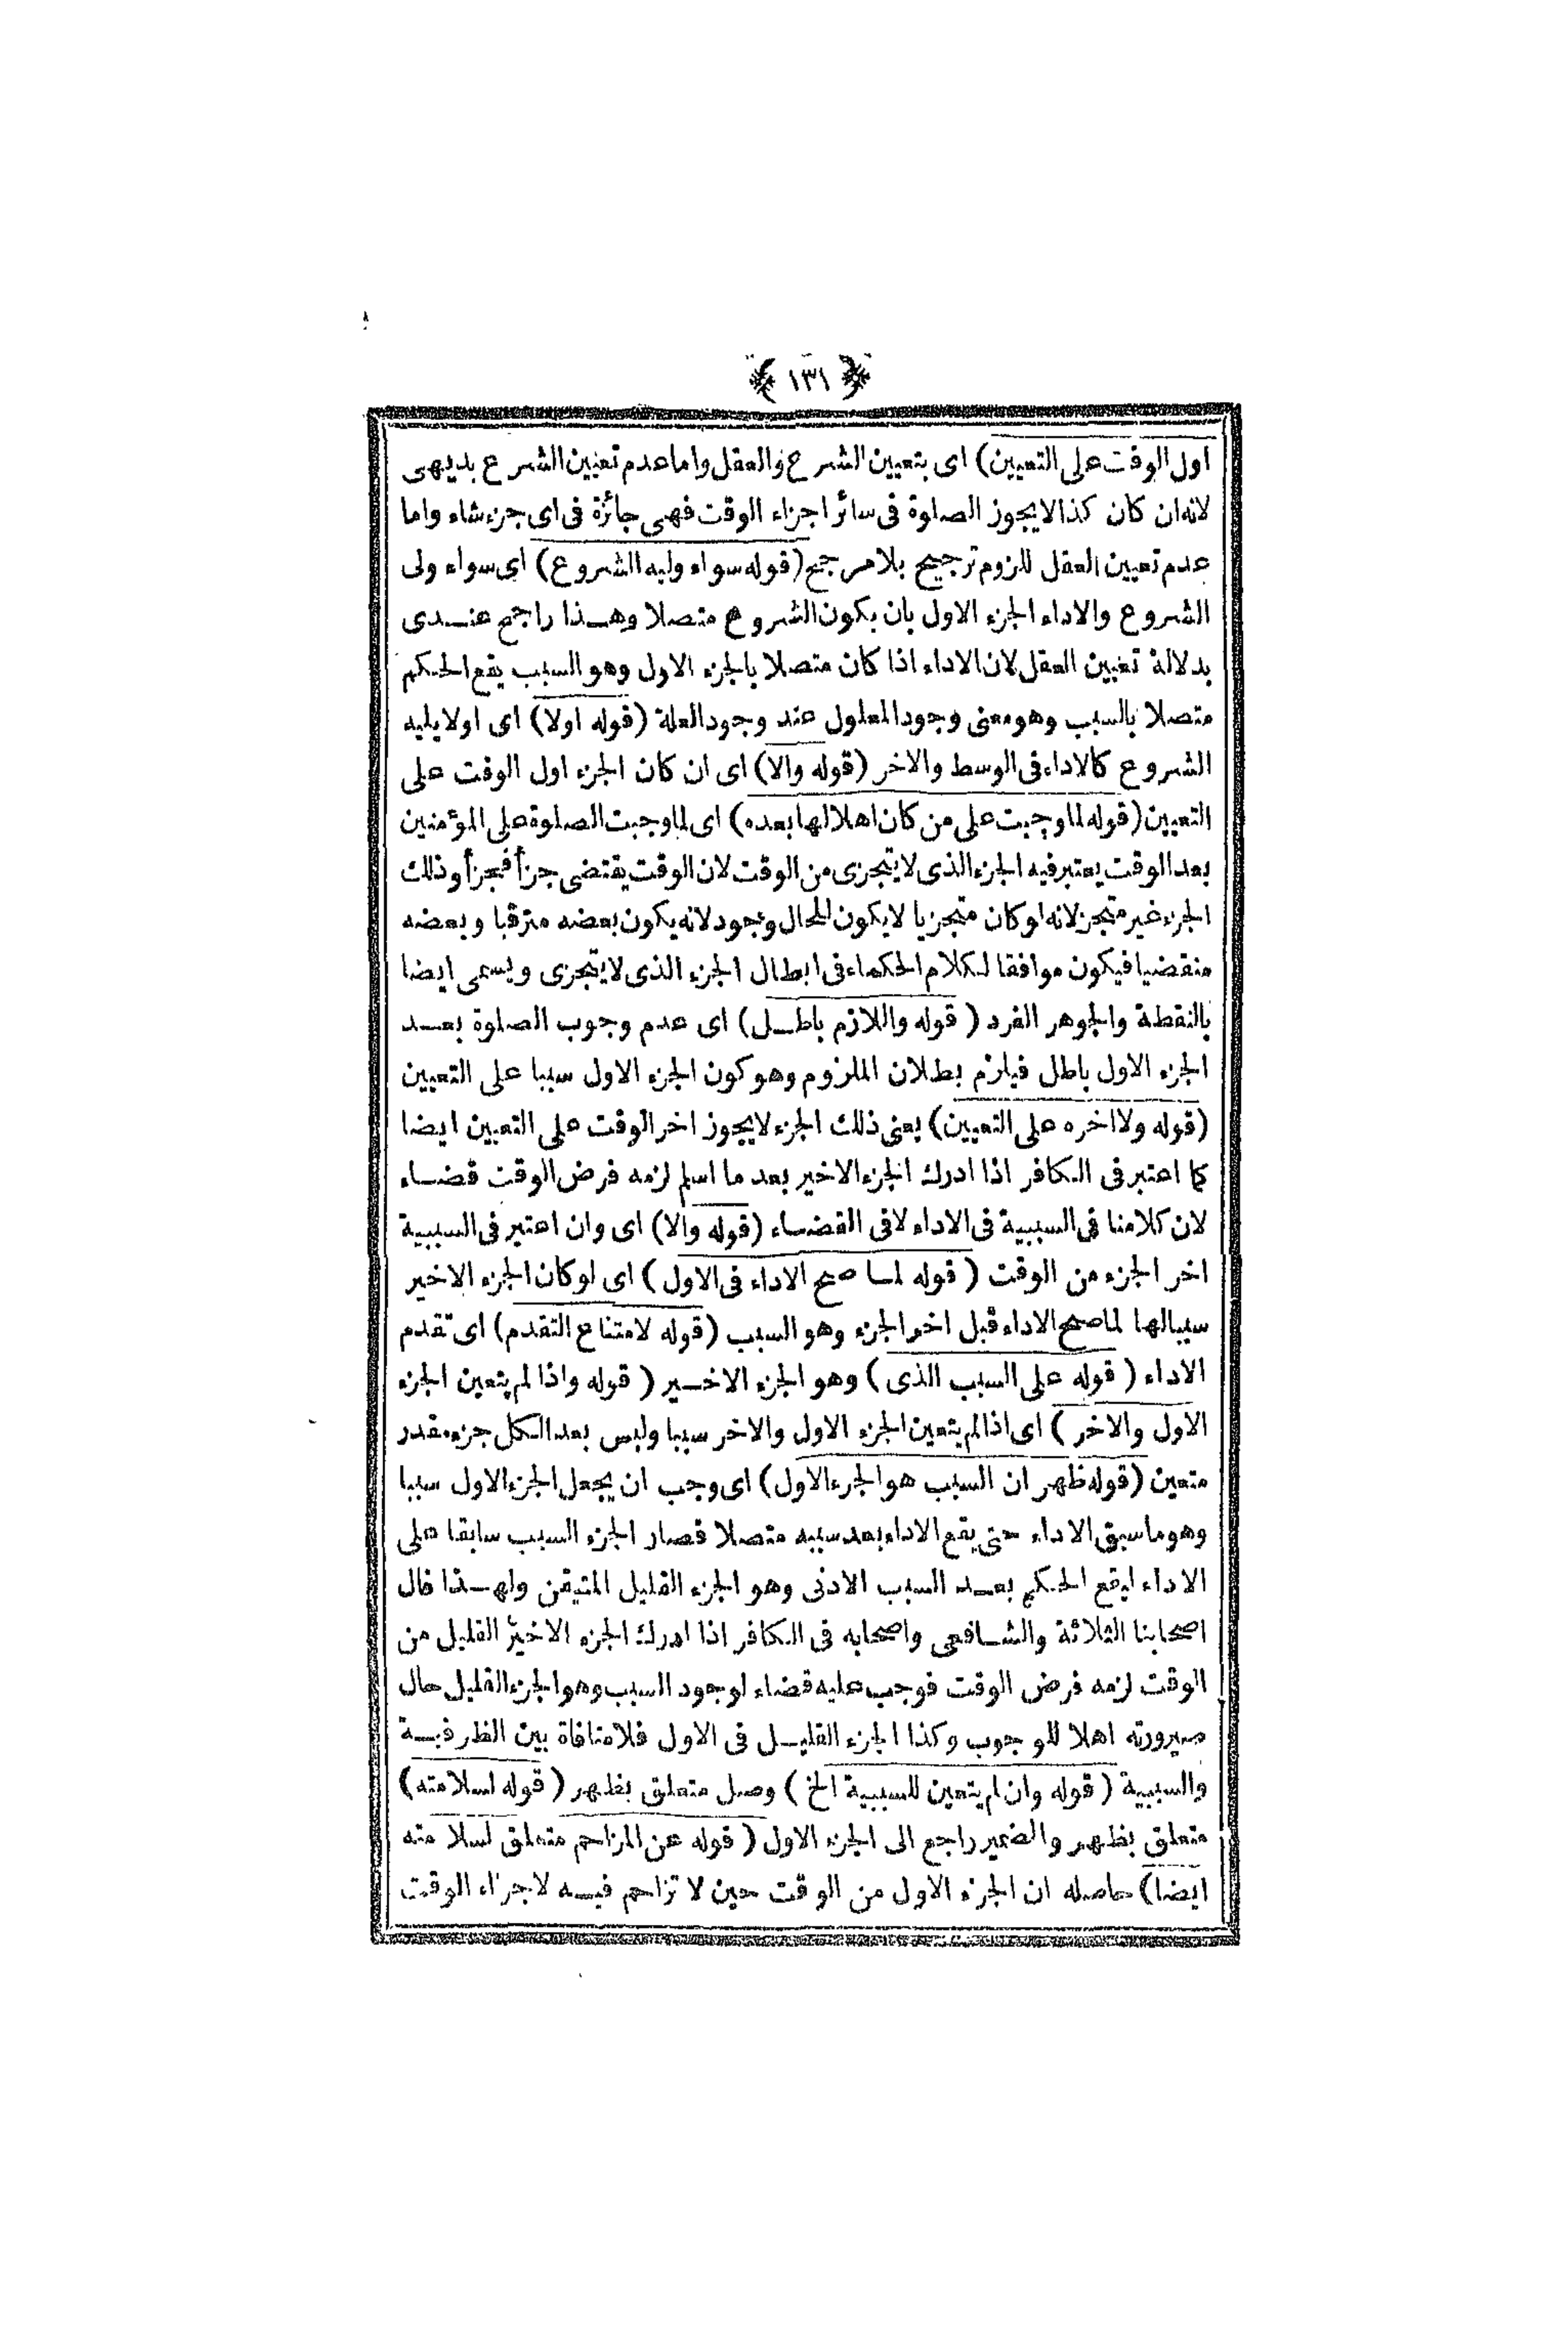 ﴿ ١٣١ ﴾
اول الوقت على التعيين) اى بتعيين الشرع والعقل واما عدم تعيين الشرع بديهى
لانه ان كان كذا لا يجوز الصلوة فى سائر اجزاء الوقت فهى جائزة فى اى جزء شاء واما
عدم تعيين العقل للزوم ترجيح بلا مرجح (قوله سواء وليه الشروع) اى سواء ولى
الشروع والاداء الجزء الاول بان يكون الشروع متصلا وهذا راجح عندى
بدلالة تعيين العقل لان الاداء اذا كان متصلا بالجزء الاول وهو السبب يقع الحكم
متصلا بالسبب وهو معنى وجود المعلول عند وجود العلة (قوله اولا) اى اولا يليه
الشروع كالاداء فى الوسط والاخر (قوله والا) اى ان كان الجزء اول الوقت على
التعيين (قوله لما وجبت على من كان اهلا لها بعده) اى لما وجبت الصلوة على المؤمنين
بعد الوقت يعتبر فيه الجزء الذى لا يتجزى من الوقت لان الوقت يقتضى جزأ فجزأ وذلك
الجزء غير متجز لانه لو كان متجزيا لا يكون للحال وجود لانه يكون بعضه مترقبا وبعضه
منقضيا فيكون موافقا لكلام الحكماء فى ابطال الجزء الذى لا يتجزى ويسمى ايضا
بالنقطة والجوهر الفرد ( قوله واللازم باطل) اى عدم وجوب الصلوة بعد
الجزء الاول باطل فيلزم بطلان الملزوم وهو كون الجزء الاول سببا على التعيين
(قوله ولا اخره على التعيين) يعنى ذلك الجزء لا يجوز اخر الوقت على التعيين ايضا
كما اعتبر فى الكافر اذا ادرك الجزء الاخير بعد ما اسلم لزمه فرض الوقت قضاء
لان كلامنا فى السببية فى الاداء لا فى القضاء (قوله والا) اى وان اعتبر فى السببية
اخر الجزء من الوقت ( قوله لما صح الاداء فى الاول ) اى لو كان الجزء الاخير
سببا لها لما صح الاداء قبل اخر الجزء وهو السبب (قوله لامتناع التقدم) اى تقدم
الاداء ( قوله على السبب الذى ) وهو الجزء الاخير ( قوله واذا لم يتعين الجزء
الاول والاخر ) اى اذا لم يتعين الجزء الاول والاخر سببا وليس بعد الكل جزء مقدر
متعين (قوله ظهر ان السبب هو الجزء الاول) اى وجب ان يجعل الجزء الاول سببا
وهو ما سبق الاداء حتى يقع الاداء بعد سببه متصلا فصار الجزء السبب سابقا على
الاداء ليقع الحكم بعد السبب الادنى وهو الجزء القليل المتيقن ولهذا قال
اصحابنا الثلاثة والشافعى واصحابه فى الكافر اذا ادرك الجزء الاخير القليل من
الوقت لزمه فرض الوقت فوجب عليه قضاء لوجود السبب وهو الجزء القليل حال
صيرورته اهلا للوجوب وكذا الجزء القليل فى الاول فلا منافاة بين الظرفية
والسببية ( قوله وان لم يتعين للسببية الخ ) وصل متعلق بظهر ( قوله لسلامته)
متعلق بظهر والضمير راجع الى الجزء الاول ( قوله عن المزاحم متعلق لسلامته
ايضا) حاصله ان الجزء الاول من الوقت حين لا تزاحم فيه لاجزاء الوقت